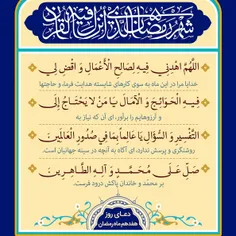 شهر رمضان الذی انزل فیه القرآن
اللّهُمَّ اهْدِنِي فِيهِ لِصَالِحِ الْأَعْمَالِ وَ اقْضِ لِي
خدایا مرا در این ماه به سوی کارهای شایسته هدایت فرما، و حاجتها
فِيهِ الْحَوَائِجَ وَ الْآمَالَ يَا مَنْ لَا يَحْتَاجُ إِلَى
و آرزوهایم را برآور، ای آن که نیاز به
التَّفْسِيرِ وَ السُّؤَالِ يَا عَالِماً بِمَا فِي صُدُورِ الْعَالَمِينَ
روشنگری و پرسش ندارد، ای آگاه به آنچه در سینه جهانیان است.
صَلِّ عَلَى مُحَمَّدٍ وَ آلِهِ الطَّاهِرِينَ
بر محمّد و خاندان پاکش درود فرست.
دعای روز
هفدهم ماه رمضان